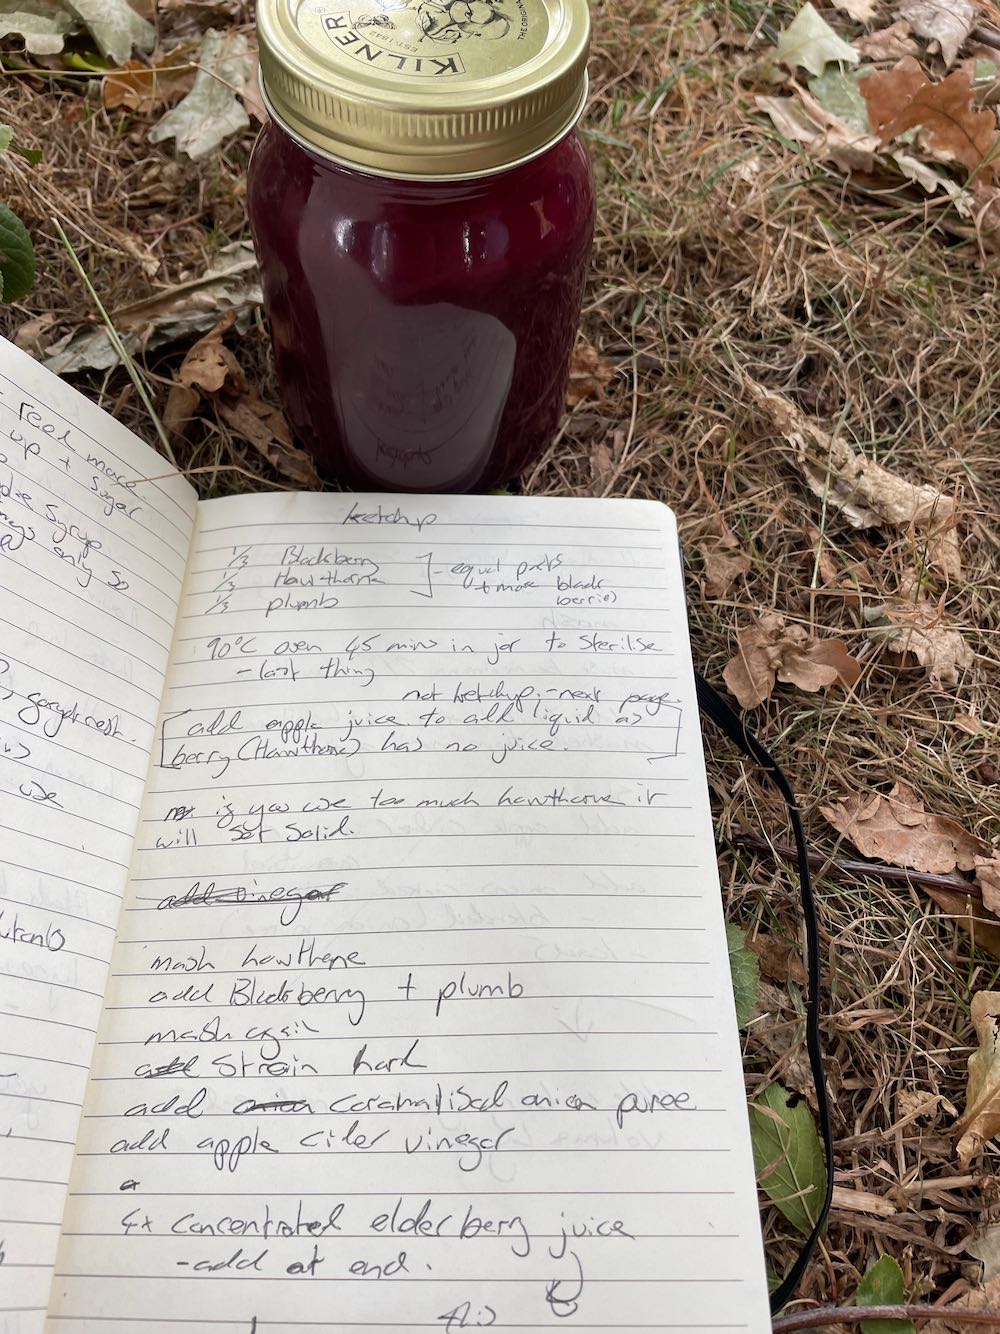 KILNER
EST. 1842
THE ORIGIN
read make
up + sugar
syrup
only so
use
ketchup
1/3 Blackberry
1/3 Hawthorne
1/3 plumb
- equal parts
+ more black
berries
90°C oven 45 mins in jar to sterilise
- last thing
not ketchup - next page.
add apple juice to add liquid as
berry (Hawthorne) has no juice.
if you use too much hawthorne it
will set solid.
add vinegar
mash hawthorne
add Blackberry + plumb
mash again
add strain hard
add onion caramalised onion puree
add apple cider vinegar
4x concentrated elderberry juice
- add at end.
this